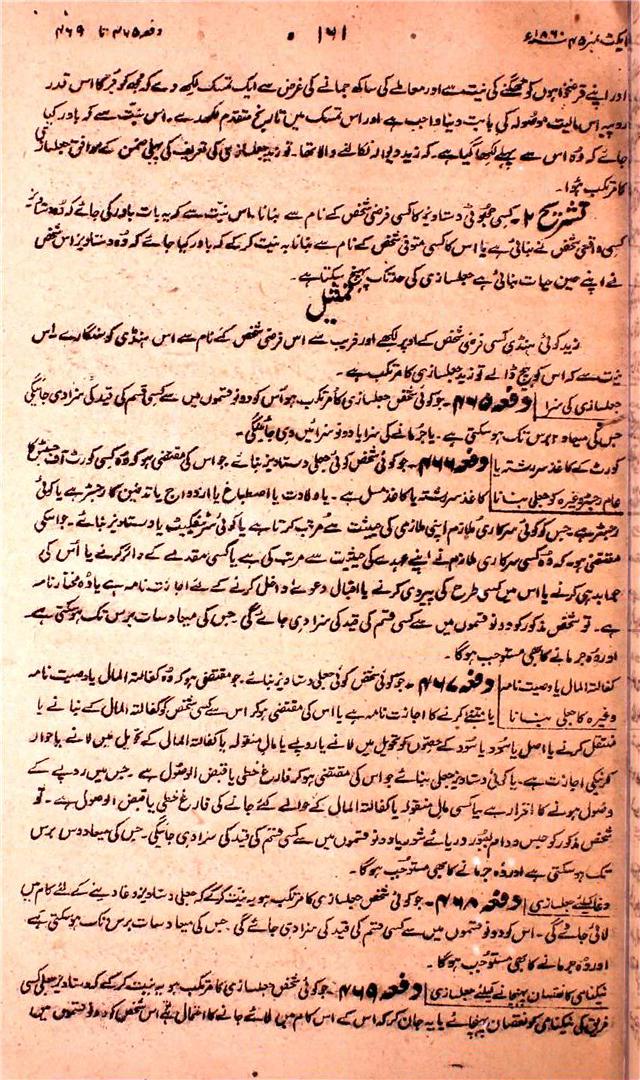 ایکٹ نمبر ۴۵ ۱۸۶۰ء ۱۶۱ دفعہ ۴۶۵ تا ۴۶۹
اور اپنے قرضخواہوں کو ٹھگنے کی نیت سے اور معاملے کی ساکھ جمانے کی غرض سے ایک تمسک لکھ دے کہ مجھ کو بکر کا اس قدر
روپیہ اس مالیت موصولہ کی بابت دینا واجب ہے اور اس تمسک میں تاریخ متقدم لکھدے۔ اس نیت سے کہ باور کیا
جائے کہ وہ اس سے پہلے لکھا گیا ہے۔ کہ زید دیوالہ نکالنے والا تھا۔ تو زید جعلسازی کی تعریف کی پہلی ضمن کے موافق جعلسازی
کا مرتکب ہوا۔
تشریح ۲۔ کسی جھوٹی دستاویز کا کسی فرضی شخص کے نام سے بنانا۔ اس نیت سے کہ یہ بات باور کی جائے کہ وہ دستاویز
کسی واقعی شخص نے بنائی ہے یا اس کا کسی متوفی شخص کے نام سے بنانا یہ نیت کر کے کہ باور کیا جائے کہ وہ دستاویز اس شخص
نے اپنے حین حیات بنائی ہے جعلسازی کی حد تک پہنچ سکتا ہے۔
تمثیل
زید کوئی ہنڈی کسی فرضی شخص کے اوپر لکھے اور فریب سے اس فرضی شخص کے نام سے اس ہنڈی کو سکارے۔ اس
نیت سے کہ اس کو بیچ ڈالے تو زید جعلسازی کا مرتکب ہے۔
جعلسازی کی سزا دفعہ ۴۶۵۔ جو کوئی شخص جعلسازی کا مرتکب ہو اس کو دونو قسموں میں سے کسی قسم کی قید کی سزا دی جائیگی
جس کی میعاد ۲ برس تک ہو سکتی ہے۔ یا جرمانے کی سزا یا دونو سزائیں دی جائینگی۔
کورٹ کے کاغذ سررشتہ یا دفعہ ۴۶۶۔ جو کوئی شخص کوئی جعلی دستاویز بنائے جو اس کی مقتضی ہو کہ وہ کسی کورٹ آف جسٹس کا
عام رجسٹر وغیرہ کو جعلی بنانا کاغذ سررشتہ یا کاغذ مسل ہے۔ یا ولادت یا اصطباغ یا ازدواج یا تدفین کا رجسٹر ہے یا کوئی
رجسٹر ہے۔ جس کو کوئی سرکاری ملازم اپنی ملازمی کی حیثیت سے مرتب کرتا ہے یا کوئی سرٹیفکیٹ یا دستاویز بنائے۔ جو اسکی
مقتضی ہو۔ کہ وہ کسی سرکاری ملازم نے اپنے عہدے کی حیثیت سے مرتب کی ہے یا کسی مقدمے کے دائر کرنے یا اس کی
جوابدہی کرنے یا اس میں کسی طرح کی پیروی کرنے یا اقبال دعوے داخل کرنے کے لئے اجازت نامہ ہے یا وہ مختار نامہ
ہے۔ تو شخص مذکور کو دونو قسموں میں سے کسی قسم کی قید کی سزا دی جائے گی۔ جس کی میعاد سات برس تک ہو سکتی ہے
اور وہ جرمانے کا بھی مستوجب ہوگا۔
کفالۃ المال یا وصیت نامہ دفعہ ۴۶۷۔ جو کوئی شخص کوئی جعلی دستاویز بنائے۔ جو مقتضی ہو کہ وہ کفالۃ المال یا وصیت نامہ
وغیرہ کا جعلی بنانا یا متبنے کرنے کا اجازت نامہ ہے یا اس کی مقتضی ہو کہ اس سے کسی شخص کو کفالۃ المال کے بنانے یا
منتقل کرنے یا اصل یا سود یا سود کے حصوں کو تحویل میں لانے یا روپے یا مال منقولہ یا کفالۃ المال کے تحویل میں لانے یا حوالہ
کرنیکی اجازت ہے۔ یا کوئی دستاویز جعلی بنائے جو اس کی مقتضی ہو کہ فارغ خطی یا قبض الوصول ہے۔ جس میں روپے کے
وصول ہونے کا اقرار ہے یا کسی مال منقولہ یا کفالۃ المال کے حوالے کئے جانے کی فارغ خطی یا قبض الوصول ہے۔ تو
شخص مذکور کو حبس دوام بعبور دریائے شور یا دونو قسموں میں سے کسی قسم کی قید کی سزا دی جائیگی۔ جس کی میعاد دس برس
تک ہو سکتی ہے اور وہ جرمانے کا بھی مستوجب ہوگا۔
دغا کیلئے جعلسازی دفعہ ۴۶۸۔ جو کوئی شخص جعلسازی کا مرتکب ہو یہ نیت کر کے کہ جعلی دستاویز دغا دینے کے لئے کام میں
لائی جائے گی۔ اس کو دونو قسموں میں سے کسی قسم کی قید کی سزا دی جائے گی۔ جس کی میعاد سات برس تک ہو سکتی ہے
اور وہ جرمانے کا بھی مستوجب ہوگا۔
نیکنامی کا نقصان پہنچانے کیلئے جعلسازی دفعہ ۴۶۹۔ جو کوئی شخص جعلسازی کا مرتکب ہو یہ نیت کر کے کہ دستاویز جعلی کسی
فریق کی نیکنامی کو نقصان پہنچائے یا یہ جان کر کہ اس کے اس کام میں لائے جانے کا احتمال ہے اس شخص کو دونو قسموں میں